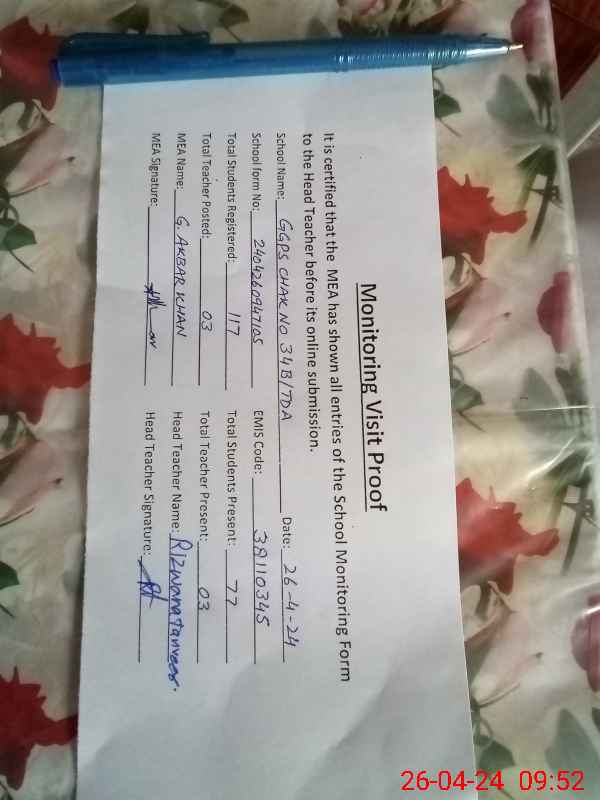 Monitoring Visit Proof
It is certified that the MEA has shown all entries of the School Monitoring Form
to the Head Teacher before its online submission.
School Name: GGPS CHAK NO 34B/TDA Date: 26-4-24
School form No: 2404260947105 EMIS Code: 38110345
Total Students Registered: 117 Total Students Present: 77
Total Teacher Posted: 03 Total Teacher Present: 03
MEA Name: G. AKBAR KHAN Head Teacher Name: Rizwana Tanveer.
MEA Signature: Head Teacher Signature:
26-04-24 09:52